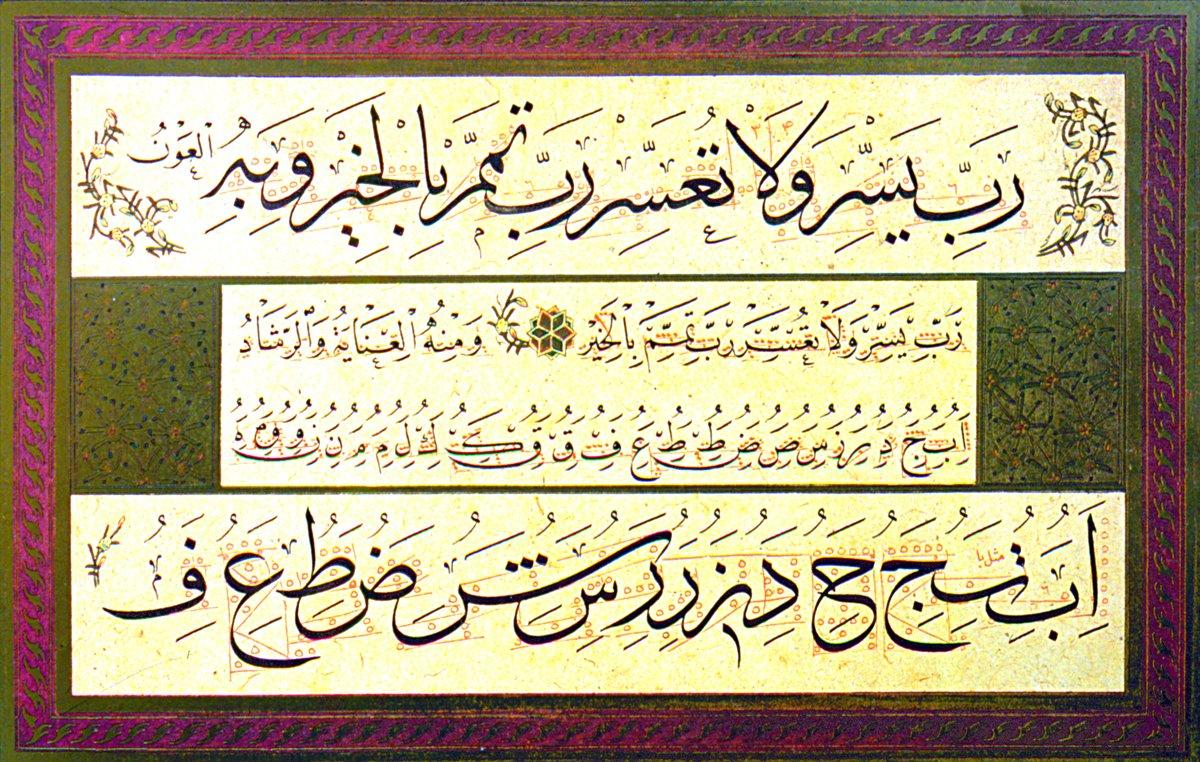 رَبِّ يَسِّرْ وَلَا تُعَسِّرْ رَبِّ تَمِّمْ بِالْخَيْرِ وَبِهِ الْعَوْنُ
رَبِّ يَسِّرْ وَلَا تُعَسِّرْ رَبِّ تَمِّمْ بِالْخَيْرِ وَمِنْهُ الْعِنَايَةُ وَالرَّشَادُ
ا ب ج د ر ز س ص ض ط ط ع ف ق ق ك ك ل م م ن ن و
ا ب ت ج ح د ز ر ر س ش ض ط ع ف